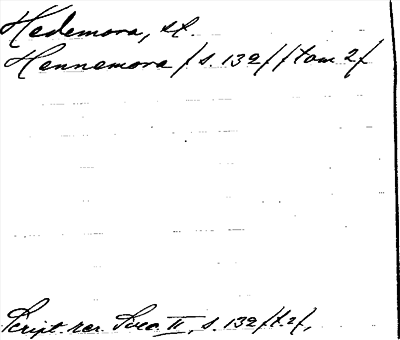 Hedemora, st.
Hennemora /s. 132/ /tom 2/
Script. rer. Svec. II, s. 132 /t. 2/,